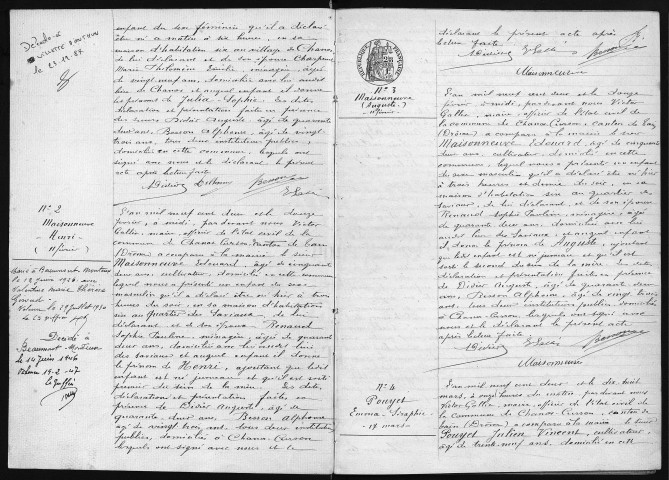 enfant du sexe féminin qu'il a déclaré
être né à six heures, en sa
maison d'habitation sise au village de Chanos
de lui déclarant et de son épouse
Marie Philomène ménagère, âgée
de vingt neuf ans, domiciliée avec lui
de Chanos et auquel enfant il donne
les prénoms de Julia Sophie. Les dites
déclaration et présentation faites en présence
de Didier Auguste, âgé de quarante
deux ans, Besson Alphonse, âgé de vingt
trois ans, tous deux instituteurs publics,
domiciliés en cette commune, lesquels ont
signé avec nous et le déclarant le présent
acte après lecture faite.
Décédée à
le 23.12.87
N° 2
Maisonneuve
Henri
11 février
L'an mil neuf cent deux et le douze
février, à midi, par devant nous Victor
Gallix, maire, officier de l'état civil de la
commune de Chanos Curson, canton de Tain
(Drôme) a comparu à la mairie le sieur
Maisonneuve Edouard, âgé de cinquante
deux ans, cultivateur, domicilié en cette commune
lequel nous a présenté un enfant du sexe
masculin qu'il a déclaré être né hier à trois
heures du soir, en sa maison d'habitation
sise au quartier des Saviaux, de lui
déclarant et de son épouse Renaud
Sophie Pauline, ménagère, âgée de quarante
deux ans, domiciliée avec lui
des Saviaux et auquel enfant il donne
le prénom de Henri, ajoutant que ledit
enfant est né jumeau et qu'il est sorti
premier du sein de la mère. Les dites
déclaration et présentation faites en
présence de Didier Auguste, âgé de
quarante deux ans, Besson Alphonse
âgé de vingt trois ans, tous deux instituteurs
publics, domiciliés à Chanos Curson
lesquels ont signé avec nous et le
Marié à Beaumont Monteux
Décédé à
Beaumont-Monteux
le 10 juin 1946
déclarant le présent acte après
lecture faite.
Maisonneuve
N° 3
Maisonneuve
(Auguste)
11 février
L'an mil neuf cent deux et le douze
février à midi, par devant nous Victor
Gallix, maire, officier de l'état civil de
la commune de Chanos Curson, canton de Tain
(Drôme) a comparu à la mairie le sieur
Maisonneuve Edouard, âgé de cinquante
deux ans, cultivateur, domicilié en cette
commune, lequel nous a présenté un enfant
du sexe masculin qu'il a déclaré né hier
à trois heures et demie du soir, en sa
maison d'habitation sise au quartier des
Saviaux, de lui déclarant et de son épouse
Renaud Sophie Pauline, ménagère, âgée
de quarante deux ans, domiciliée avec lui
des Saviaux, et auquel enfant
il donne le prénom de Auguste, ajoutant
que ledit enfant est né jumeau et qu'il est
sorti le second du sein de la mère. Les dites
déclaration et présentation faites en présence
de Didier Auguste, âgé de quarante deux
ans, Besson Alphonse, âgé de vingt trois
ans, tous deux instituteurs publics, domiciliés
à Chanos Curson, lesquels ont signé avec
nous et le déclarant le présent acte
après lecture faite.
Maisonneuve
N° 4
Pouzet
Emma Séraphie
17 mars
L'an mil neuf cent deux et le dix huit
mars, à onze heures du matin, par devant nous
Victor Gallix, maire, officier de l'état civil de
la commune de Chanos Curson, canton de
Tain (Drôme) a comparu à la mairie le sieur
Pouzet Julien Vincent, cultivateur,
âgé de trente neuf ans, domicilié en cette